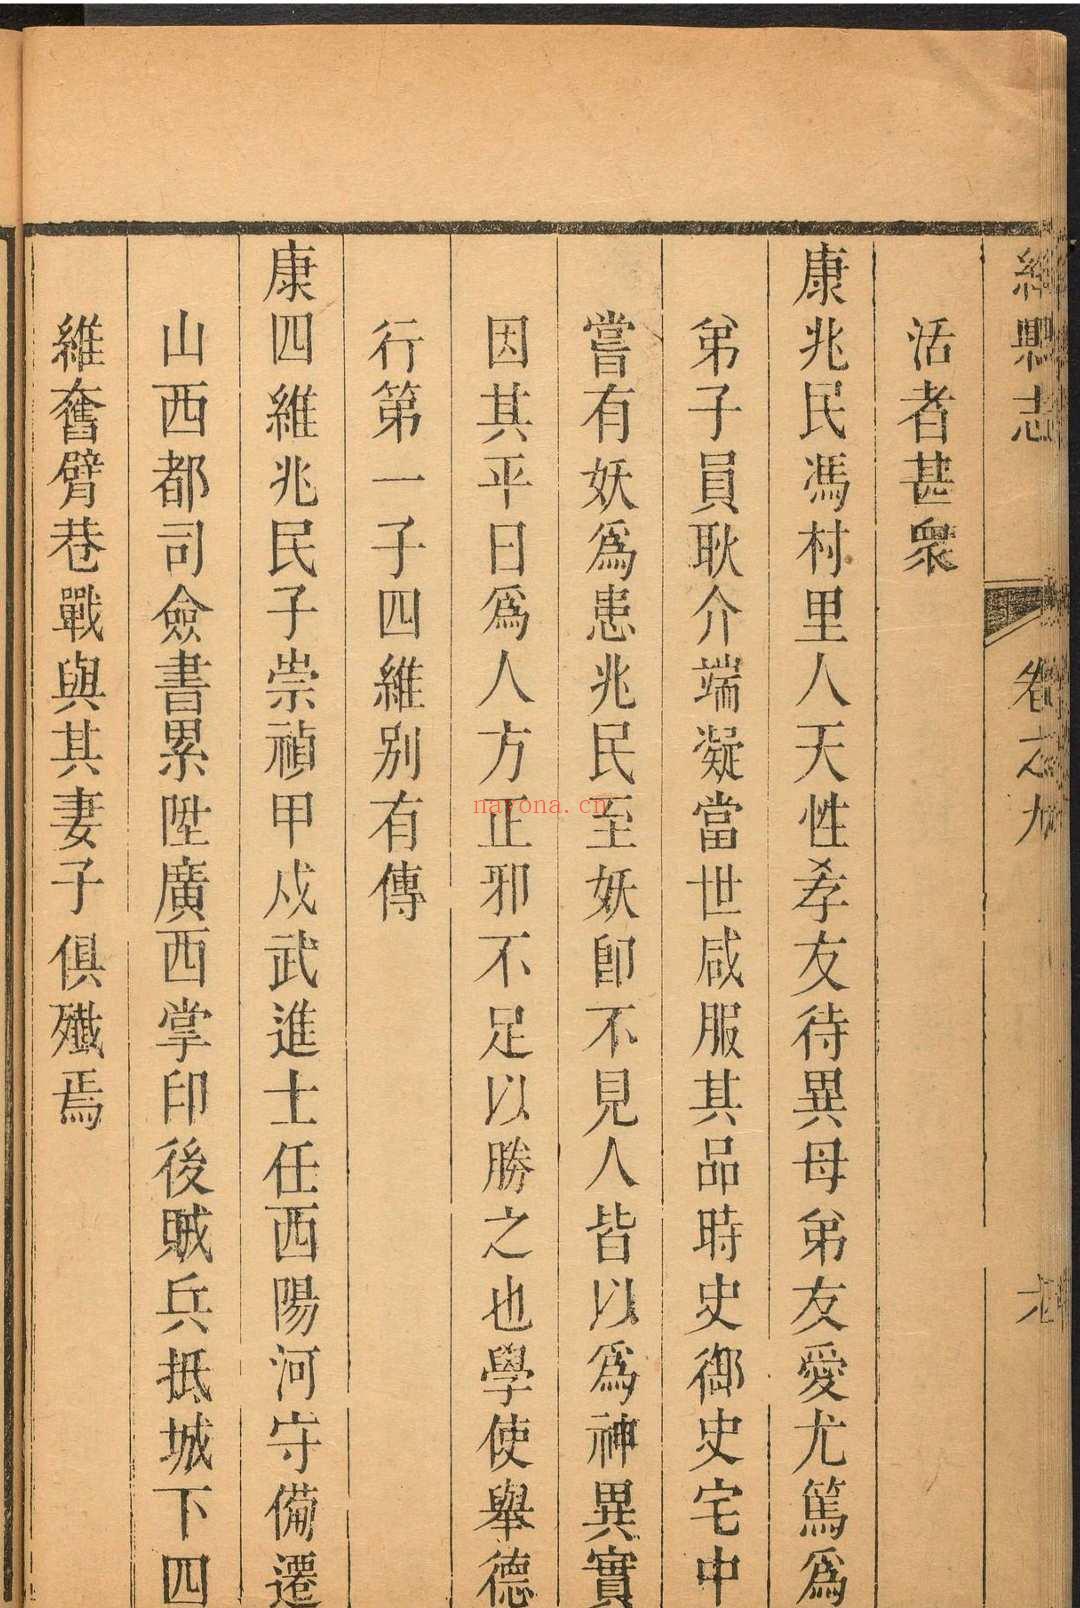 縣志 卷之九
活者甚衆
康兆民馮村里人天性孝友待異母弟友愛尤篤爲
弟子員耿介端凝當世咸服其品時史御史宅中
嘗有妖爲患兆民至妖卽不見人皆以爲神異實
因其平日爲人方正邪不足以勝之也學使舉德
行第一子四維別有傳
康四維兆民子崇禎甲戍武進士任西陽河守備遷
山西都司僉書累陞廣西掌印後賊兵抵城下四
維奮臂巷戰與其妻子俱殲焉
nayona.cn